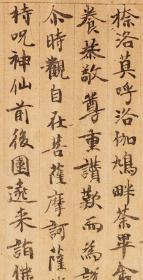 㮈洛莫呼洛伽鳩畔荼畢舍
養恭敬尊重讚歎而為說
尒時觀自在菩薩摩訶薩
持呪神仙前後圍遶来詣佛